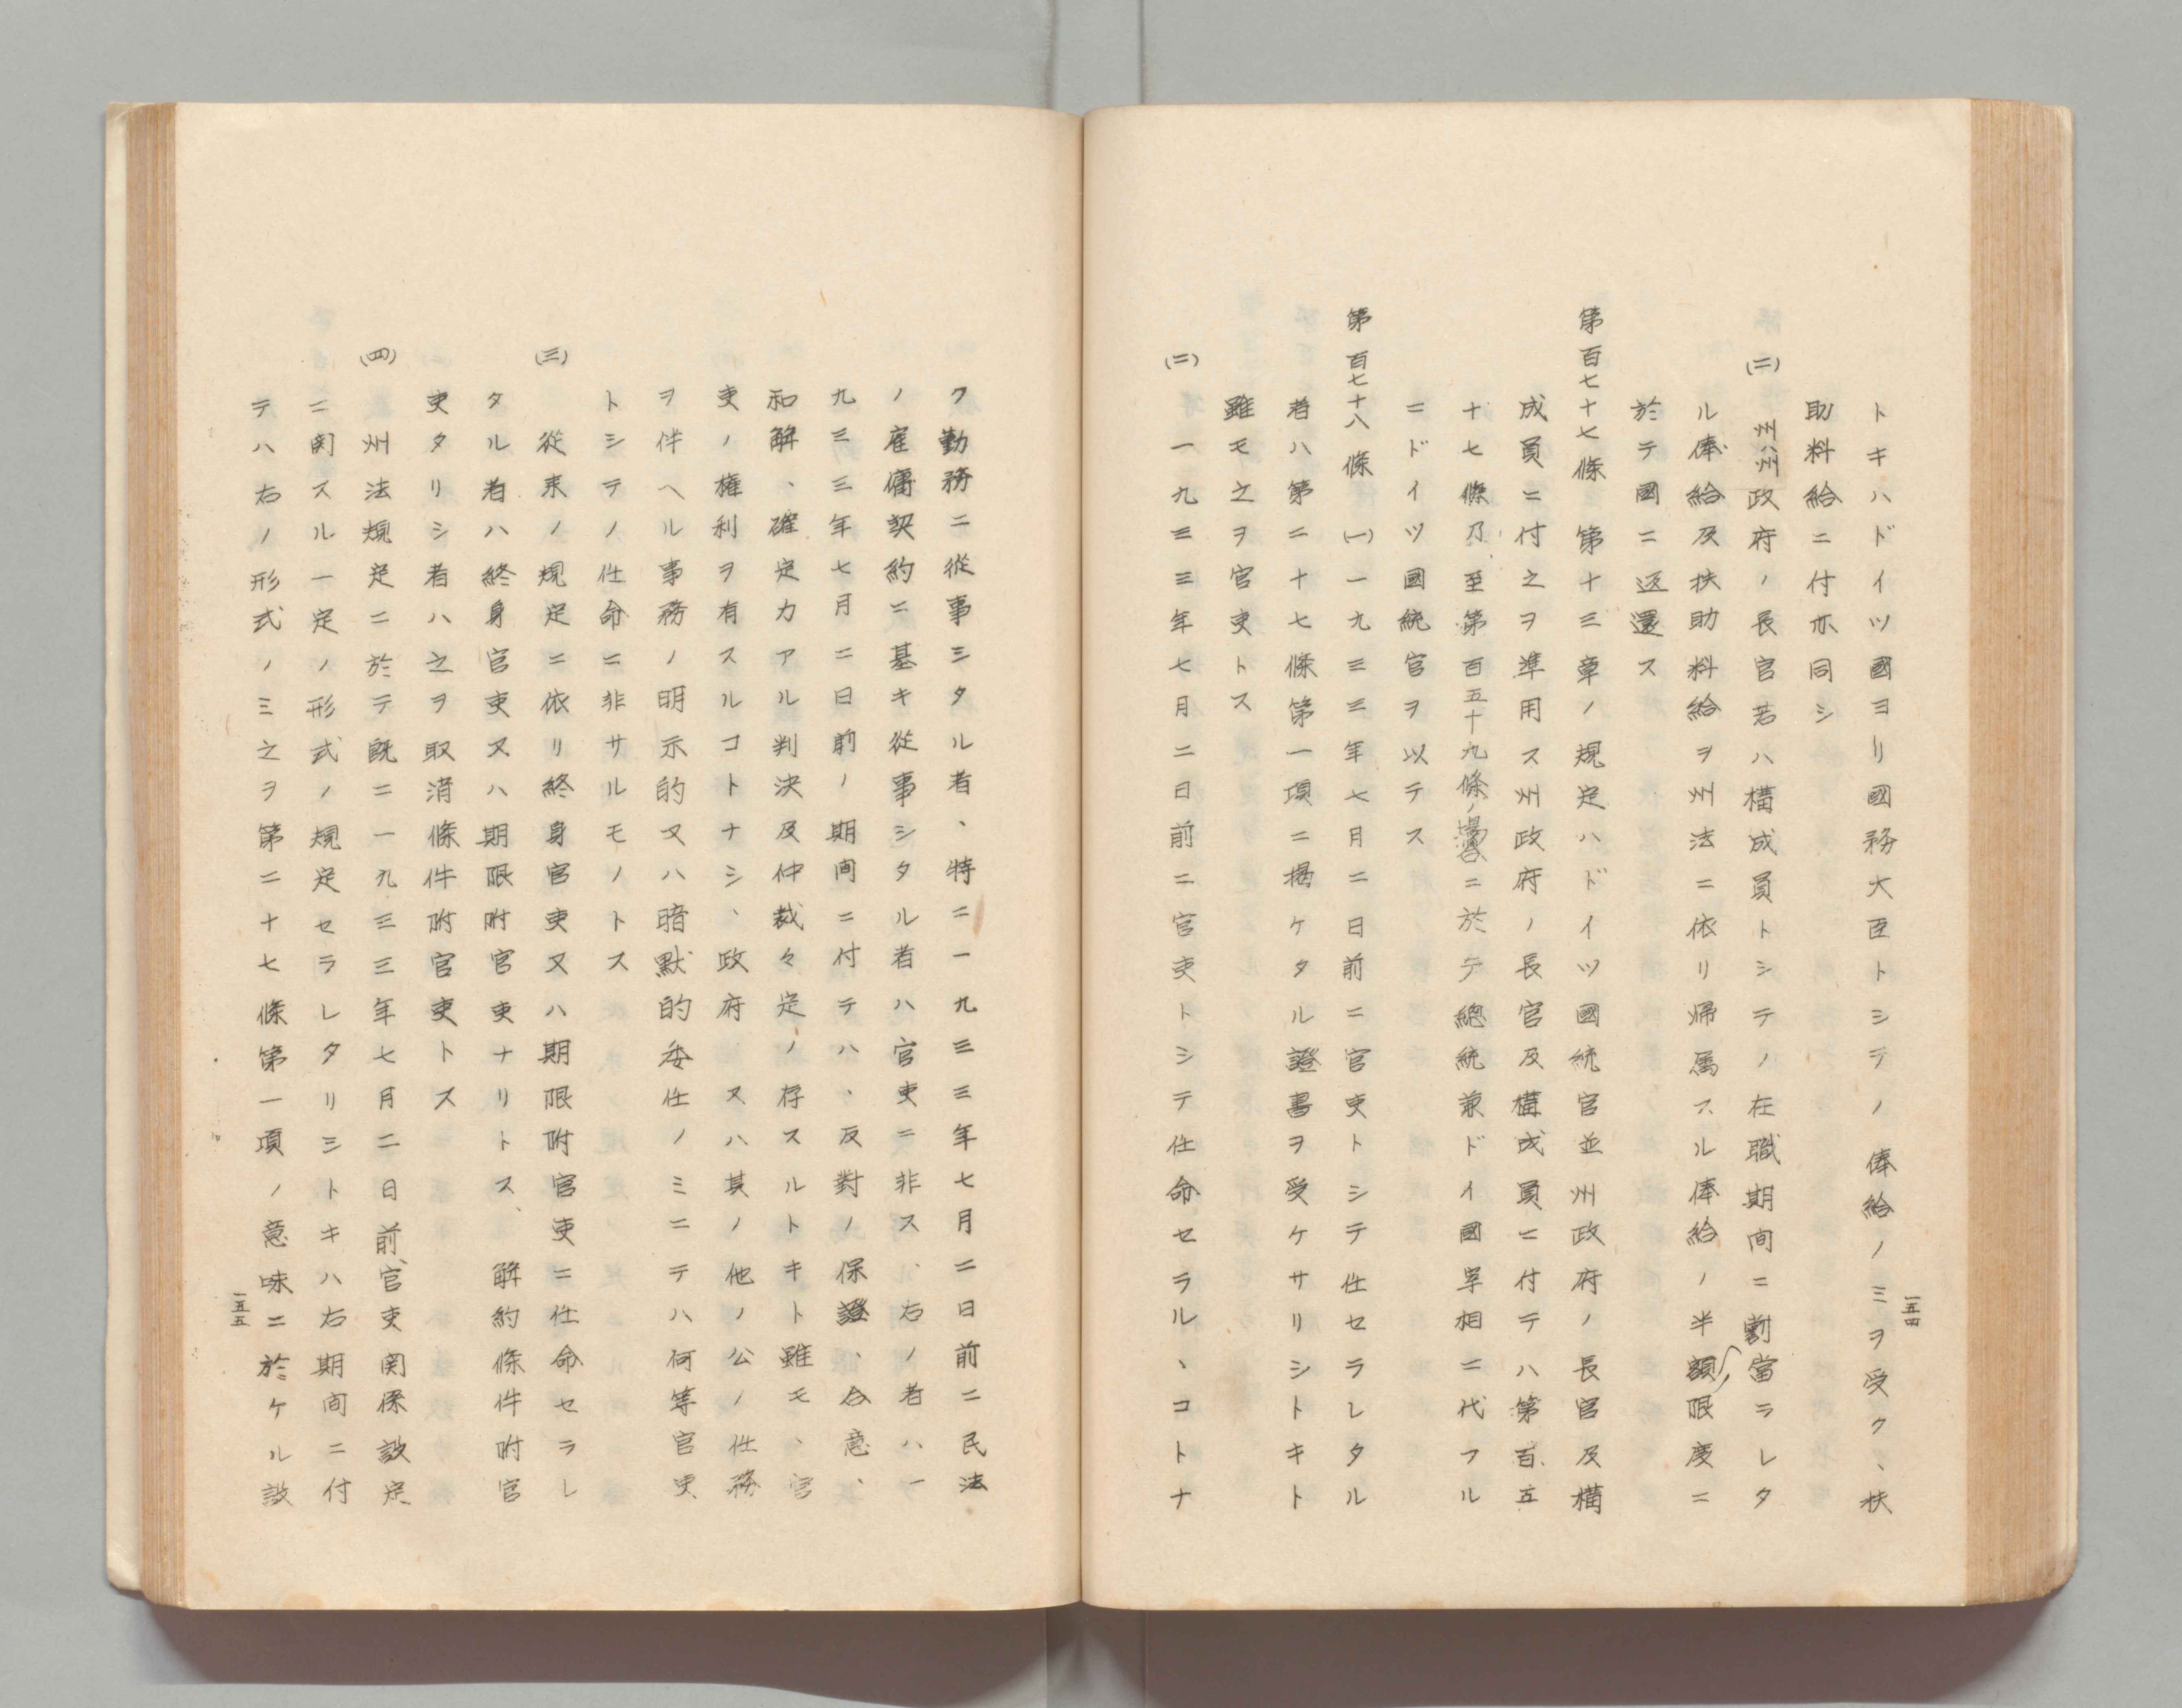 トキハドイツ國ヨリ國務大臣トシテノ俸給ノミヲ受ク、扶
助料給ニ付亦同シ
(二) 州政府ノ長官若ハ構成員トシテノ在職期間ニ割當ラレタ
ル俸給及扶助料給ヲ州法ニ依リ帰属スル俸給ノ半額ノ限度ニ
於テ國ニ返還ス
第百七十七條 第十三章ノ規定ハドイツ國統官並州政府ノ長官及構
成員ニ付之ヲ準用ス州政府ノ長官及構成員ニ付テハ第百五
十七條乃至第百五十九條ノ場合ニ於テ總統兼ドイ國宰相ニ代フル
ニドイツ國統官ヲ以テス
第百七十八條 (一) 一九三三年七月二日前ニ官吏トシテ仕セラレタル
者ハ第二十七條第一項ニ揭ケタル證書ヲ受ケサリシトキト
雖モ之ヲ官吏トス
(二) 一九三三年七月二日前ニ官吏トシテ仕命セラル、コトナ
一五四
ク勤務ニ從事ミタル者、特ニ一九三三年七月二日前ニ民法
ノ雇傭契約ニ基キ從事シタル者ハ官吏ニ非ス、右ノ者ハ一
九三三年七月二日前ノ期間ニ付テハ、反對ノ保證、合意、
和解、確定力アル判決及仲裁々定ノ存スルトキト雖モ、官
吏ノ權利ヲ有スルコトナシ、政府又ハ其ノ他ノ公ノ仕務
ヲ伴ヘル事務ノ明示的又ハ暗默的委仕ノミニテハ何等官吏
トシテノ仕命ニ非サルモノトス
(三) 從来ノ規定ニ依リ終身官吏又ハ期限附官吏ニ仕命セラレ
タル者ハ終身官吏又ハ期限附官吏ナリトス、解約條件附官
吏タリシ者ハ之ヲ取消條件附官吏トス
(四) 州法規定ニ於テ既ニ一九三三年七月二日前官吏関係設定
ニ関スル一定ノ形式ノ規定セラレタリシトキハ右期間ニ付
テハ右ノ形式ノミ之ヲ第二十七條第一項ノ意味ニ於ケル設
一五五